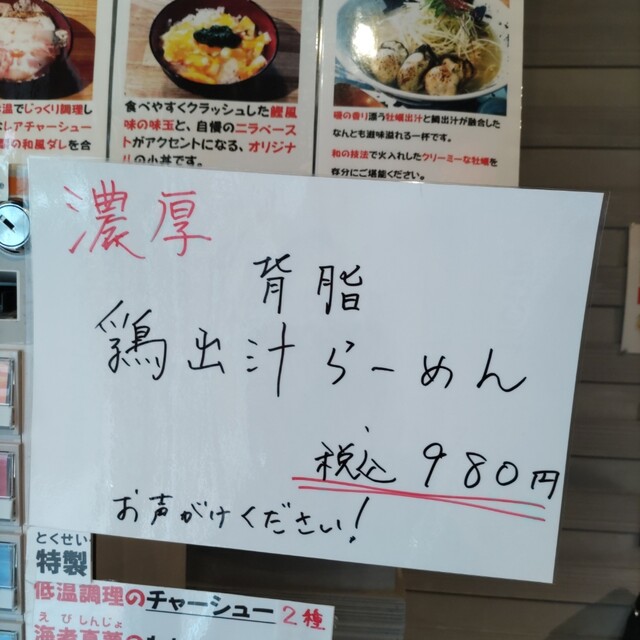 温でじっくり調理し
レアチャーシュー
の和風ダレを合
食べやすくクラッシュした鰹風
味の味玉と、自慢のニラペース
トがアクセントになる、オリジナ
リの小丼です。
磯の香り漂う牡蠣出汁と鶏出汁が融合した
なんとも滋味溢れる一杯です。
和の技法で火入れしたクリーミーな牡蠣を
存分にご堪能ください。
濃厚
背脂
鶏出汁らーめん
税込 980円
お声がけください!
とくせい
特製
低温調理のチャーシュー2種
えびしんじょ
海老真薯の